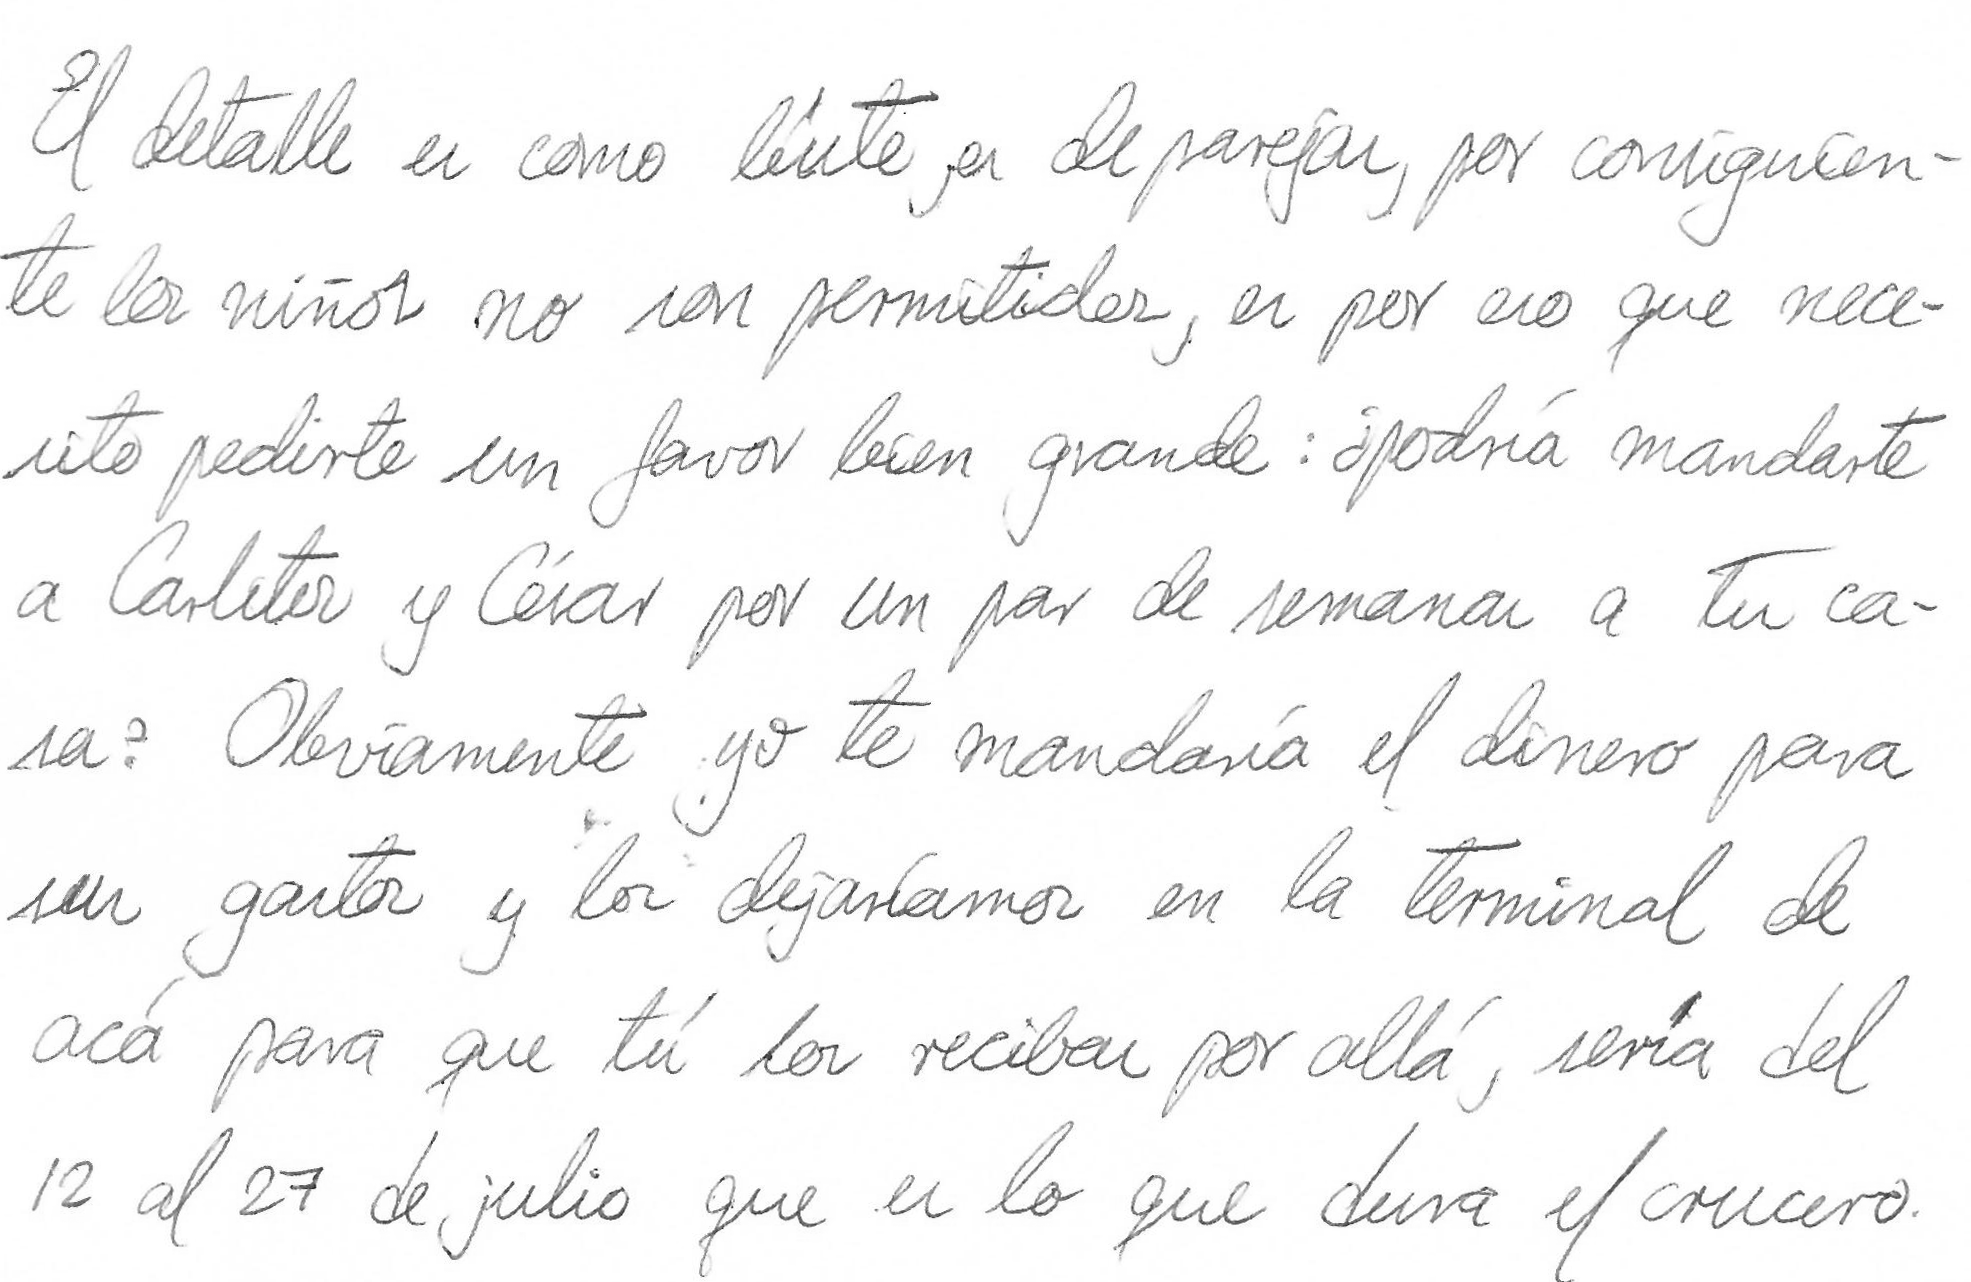 El detalle es como léiste, es de parejas, por consiguien-
te los niños no son permitidos, es por eso que nece-
sito pedirte un favor bien grande: ¿podría mandarte
a Carlitos y César por un par de semanas a tu ca-
sa? Obviamente yo te mandaría el dinero para
sus gastos y los dejaríamos en la terminal de
acá para que tú los recibas por allá, sería del
12 al 27 de julio que es lo que dura el crucero.